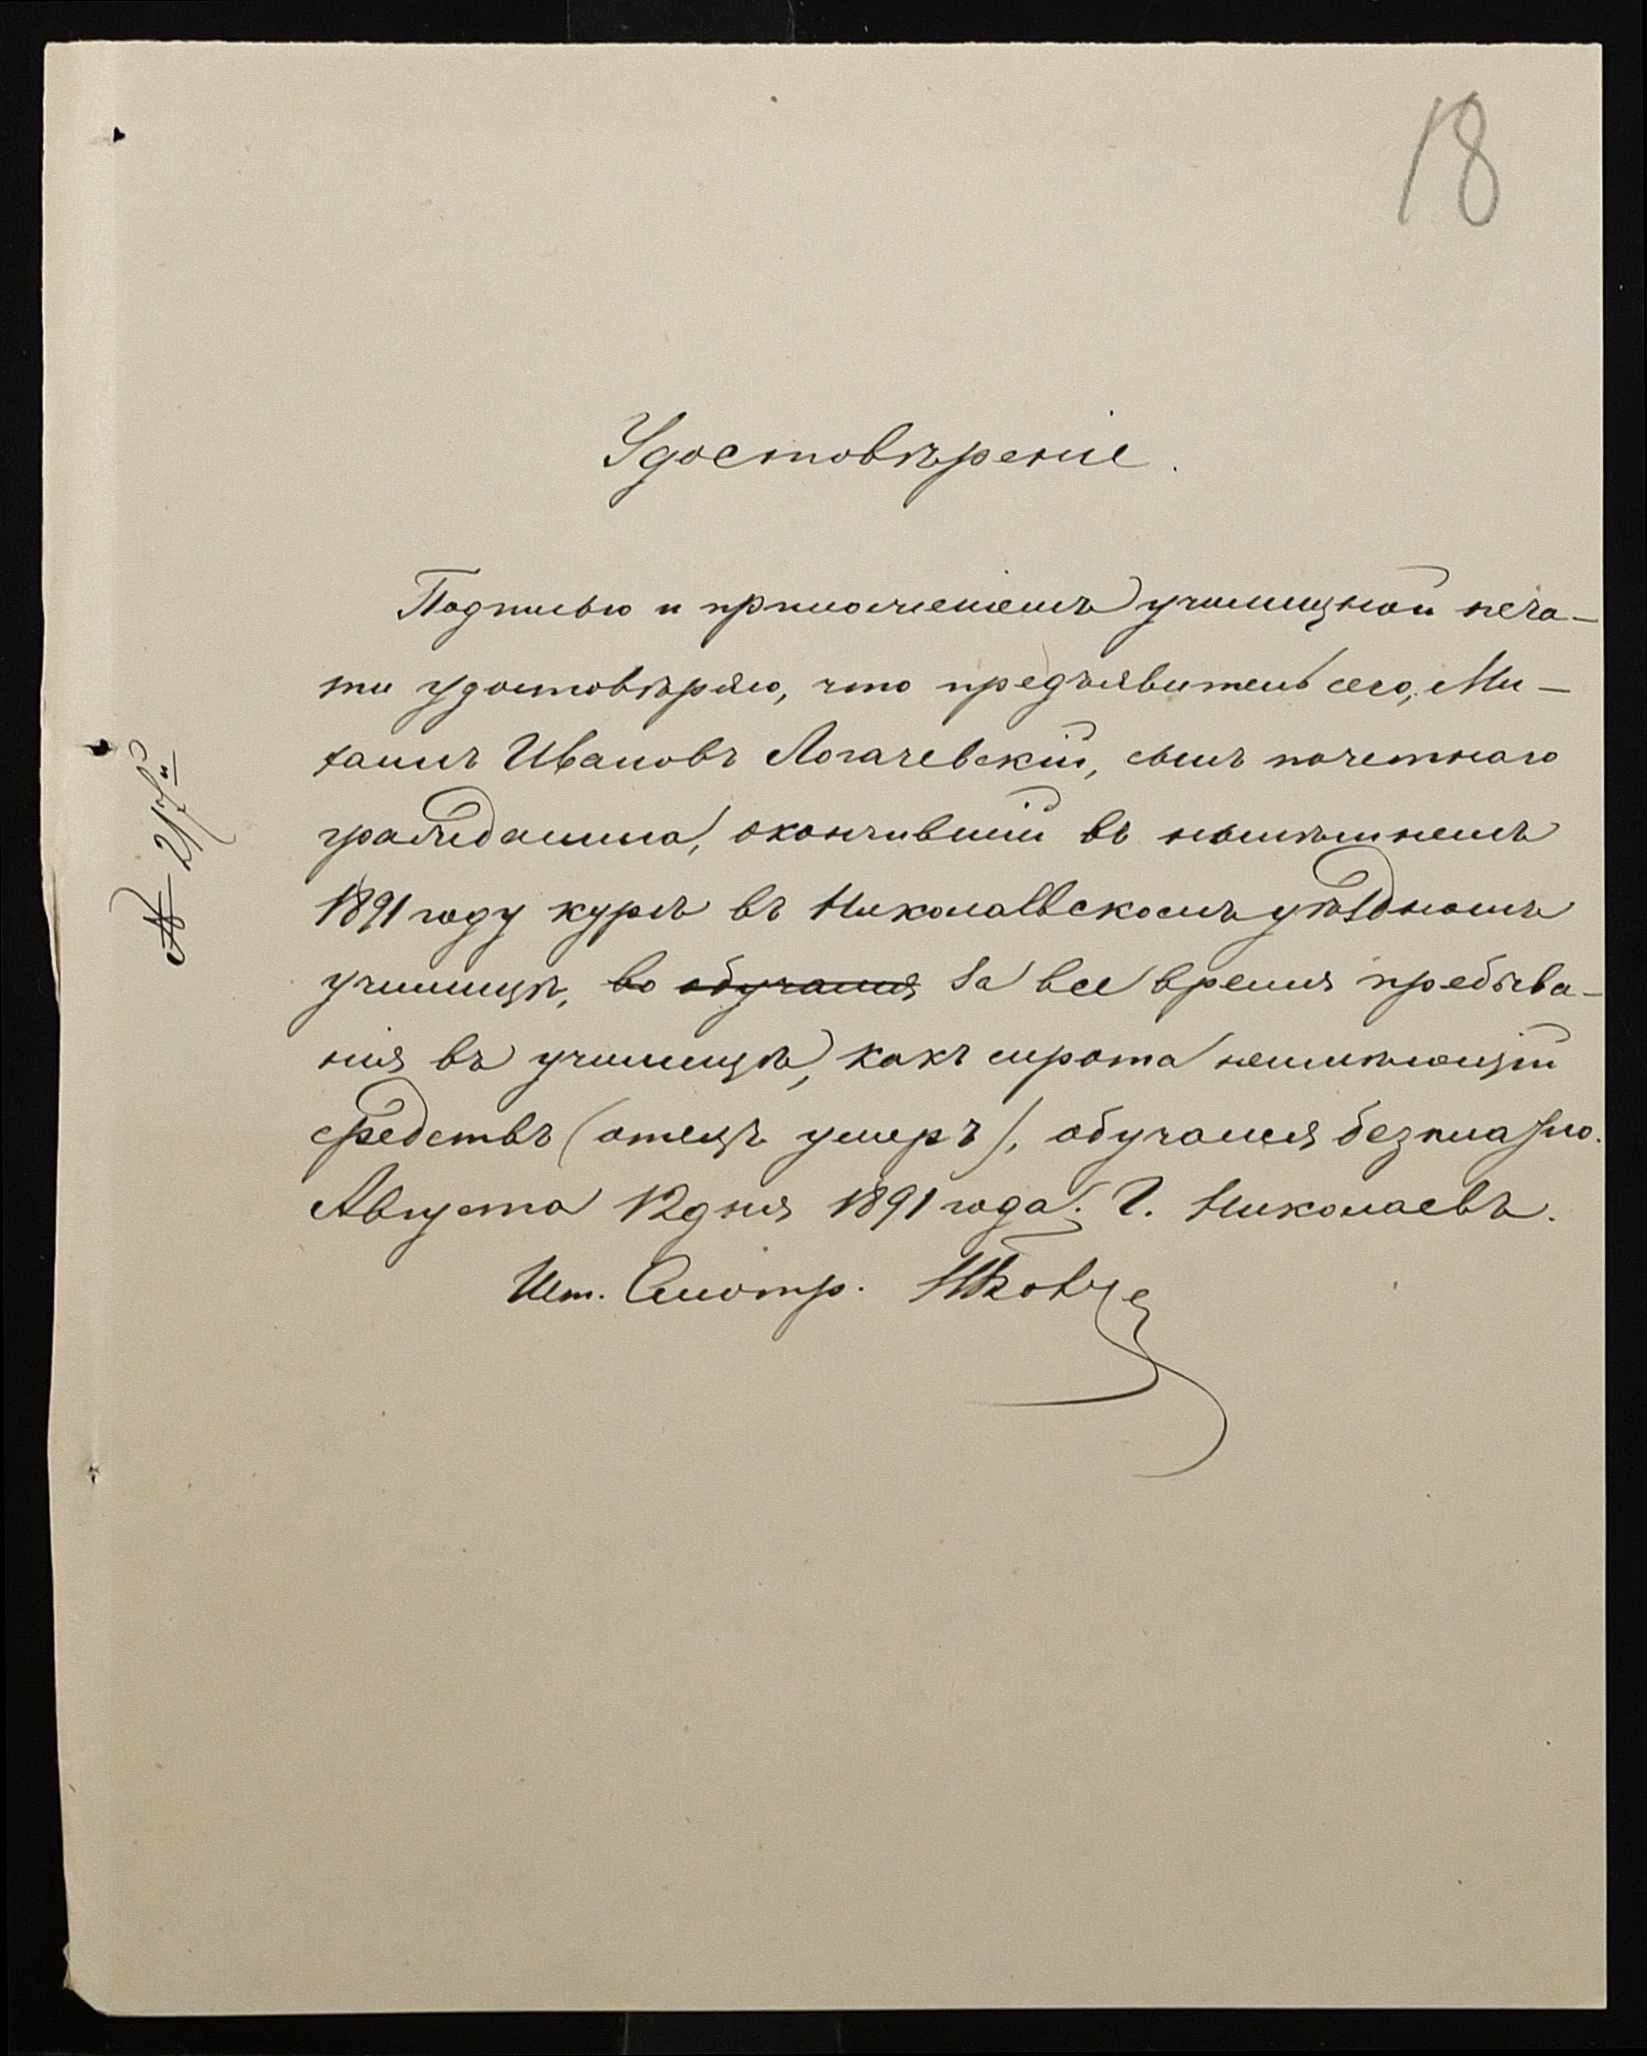 18
Удостовѣреніе.
Подписью и приложеніемъ училищной печа-
ти удостовѣряю, что предъявитель сего, Ми-
хаилъ Ивановъ Логачевскій, сынъ почетнаго
гражданина, окончившій въ нынѣшнемъ
1891 году курсъ въ Николаевскомъ уѣздномъ
училищѣ, во обучался за все время пребыва-
нія въ училищѣ, какъ сирота неимѣющій
средствъ (отецъ умеръ), обучался безплатно.
Августа 12 дня 1891 года. Г. Николаевъ.
Шт. Смотр.
№